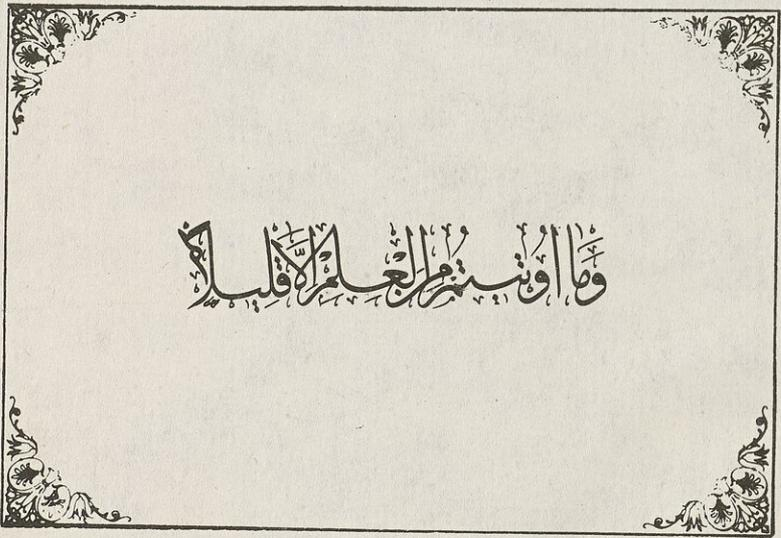 وَمَا اُوتِيتُمْ مِنَ الْعِلْمِ اِلَّا قَلِيلًا